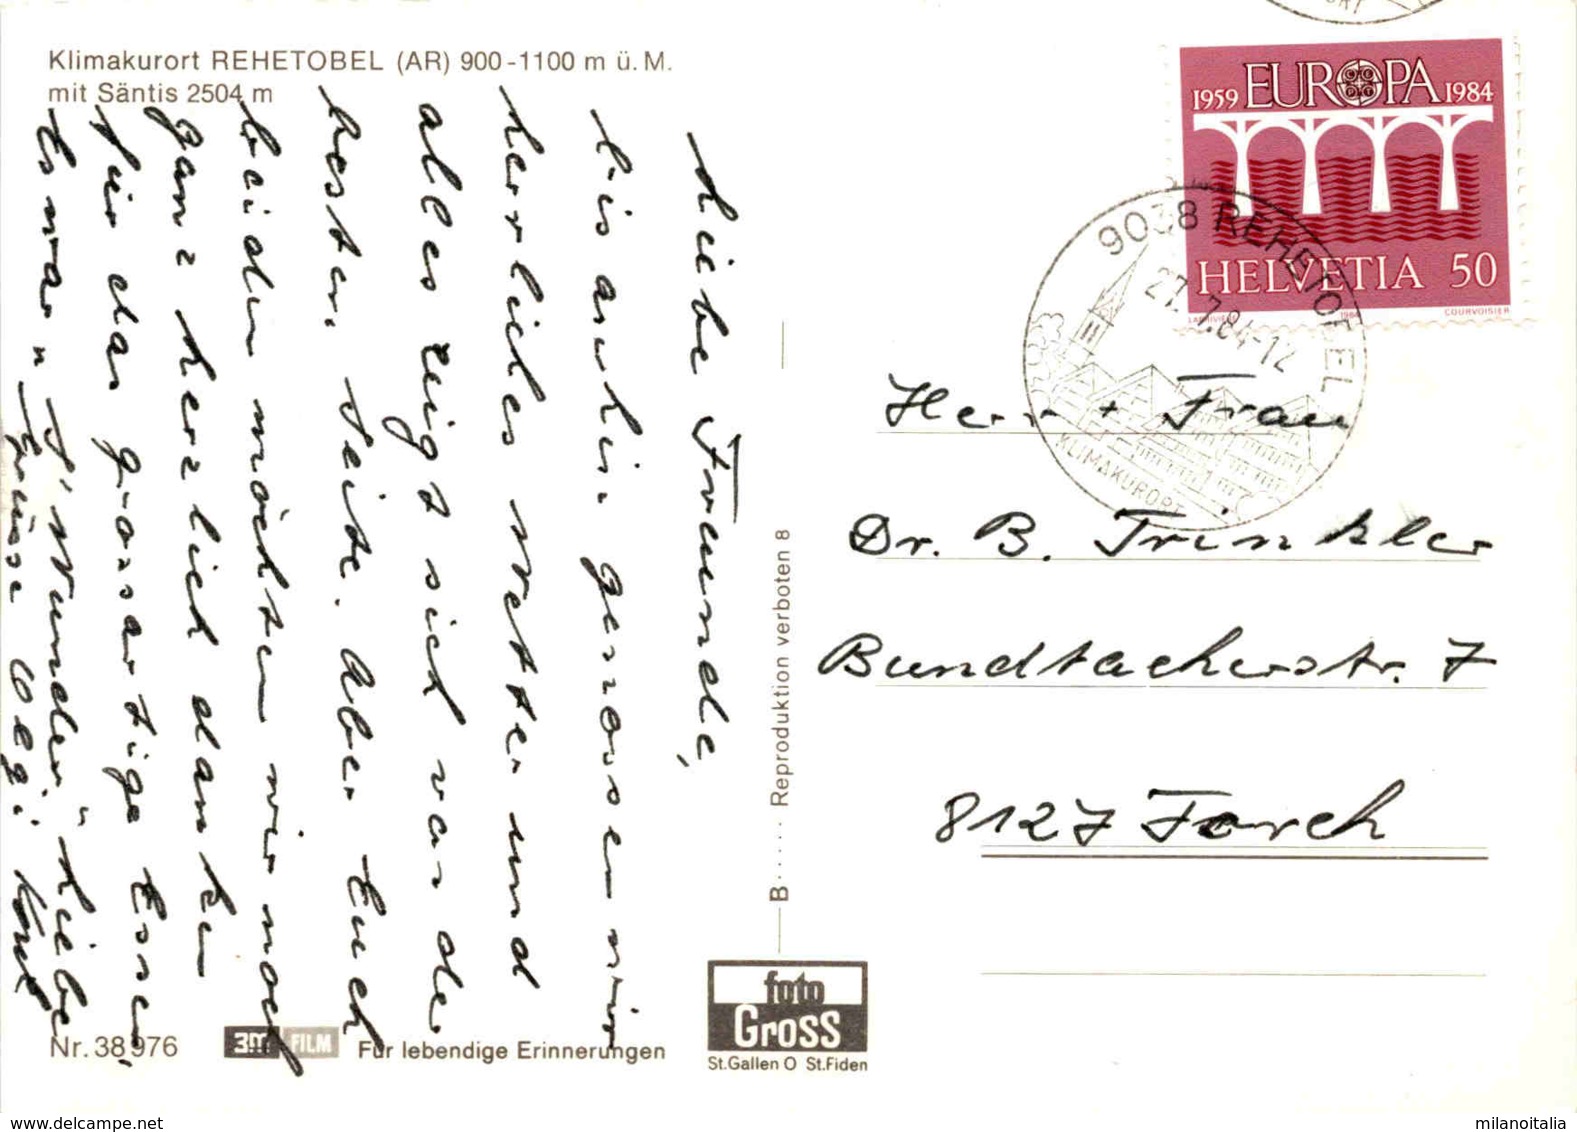 Klimakurort REHETOBEL (AR) 900-1100 m ü. M.
mit Säntis 2504 m
Liebe Freunde,
bis anhin genossen wir
herrliches Wetter und
alles zeigt sich von der
besten Seite. Aber Euch
beiden möchten wir noch
ganz herzlich danken
für das grossartige Essen,
Es war "s'Wunder" Liebe
Grüsse
B...... Reproduktion verboten 8
1959 EUROPA 1984
CEPT
HELVETIA 50
1984 COURVOISIER
9038 REHETOBEL
27.7.84-12
KLIMAKURORT
Herr + Frau
Dr. B. Trinkler
Bundtacherstr. 7
8127 Forch
Nr. 38 976
3M FILM Für lebendige Erinnerungen
foto
GROSS
St.Gallen O St.Fiden
www.delcampe.net
milanoitalia